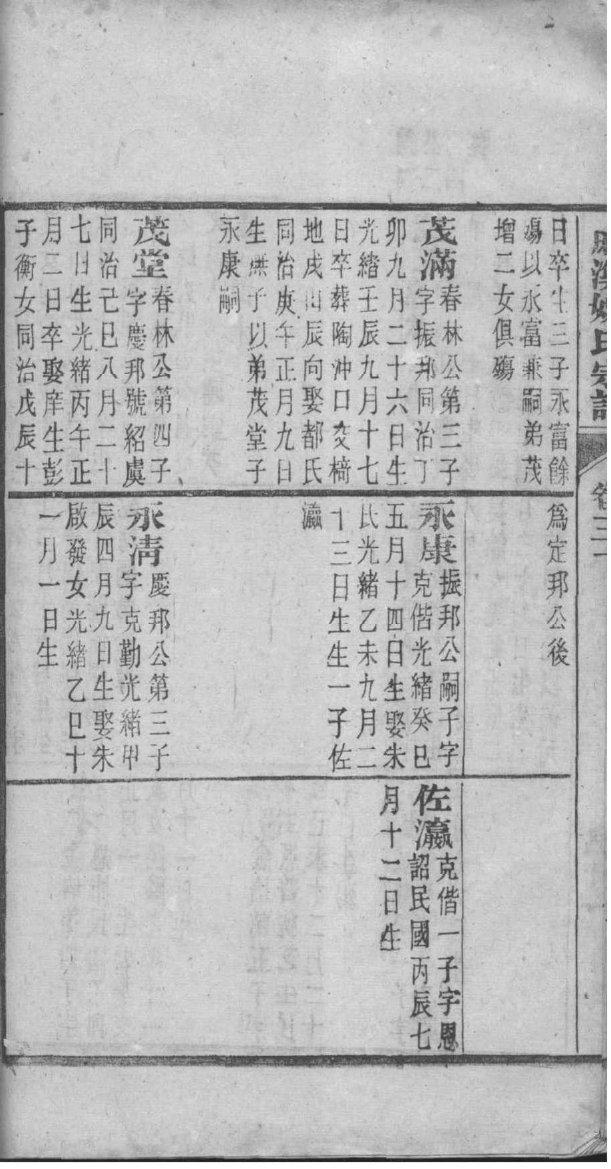 溪姚氏宗譜
卷三十
日卒生三子永富餘
殤以永富兼嗣弟茂
增二女俱殤
茂滿春林公第三子
字振邦同治丁
卯九月二十六日生
光緒壬辰九月十七
日卒葬陶沖口交椅
地戌山辰向娶都氏
同治庚午正月九日
生無子以弟茂堂子
永康嗣
茂堂春林公第四子
字慶邦號紹虞
同治己巳八月二十
七日生光緒丙午正
月三日卒娶庠生彭
子衡女同治戊辰十
為定邦公後
永康振邦公嗣子字
克偕光緒癸巳
五月十四日生娶朱
氏光緒乙未九月二
十三日生生一子佐
瀛
永清慶邦公第三子
字克勤光緒甲
辰四月九日生娶朱
啟發女光緒乙巳十
一月一日生
佐瀛克偕一子字恩
詔民國丙辰七
月十二日生